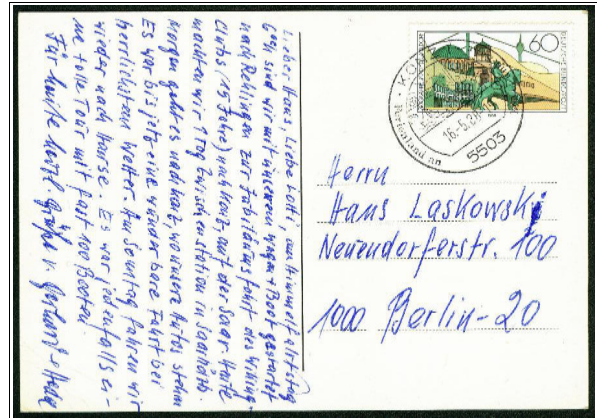 Lieber Hans, liebe Lotti, am Himmelfahrtstag
sind wir mit unserem Wagen + Boot gestartet
nach Rehlingen zur Jubiläumsfahrt des
Clubs (15 Jahre) nach Konz, auf der Saar. Heute
machten wir 1 Tag Zwischenstation in
Morgen geht es nach Konz, wo unsere Autos stehn
Es war bis jetzt eine wunderbare Fahrt bei
herrlichstem Wetter. Am Sonntag fahren wir
wieder nach Hause. Es war jedenfalls ei-
ne tolle Tour mit fast 100 Booten.
Für heute herzl. Grüße v.
60
DEUTSCHE BUNDESPOST
KONZ
16.-5.88
5503
Herrn
Hans Laskowski
Neuendorferstr. 100
1000 Berlin-20